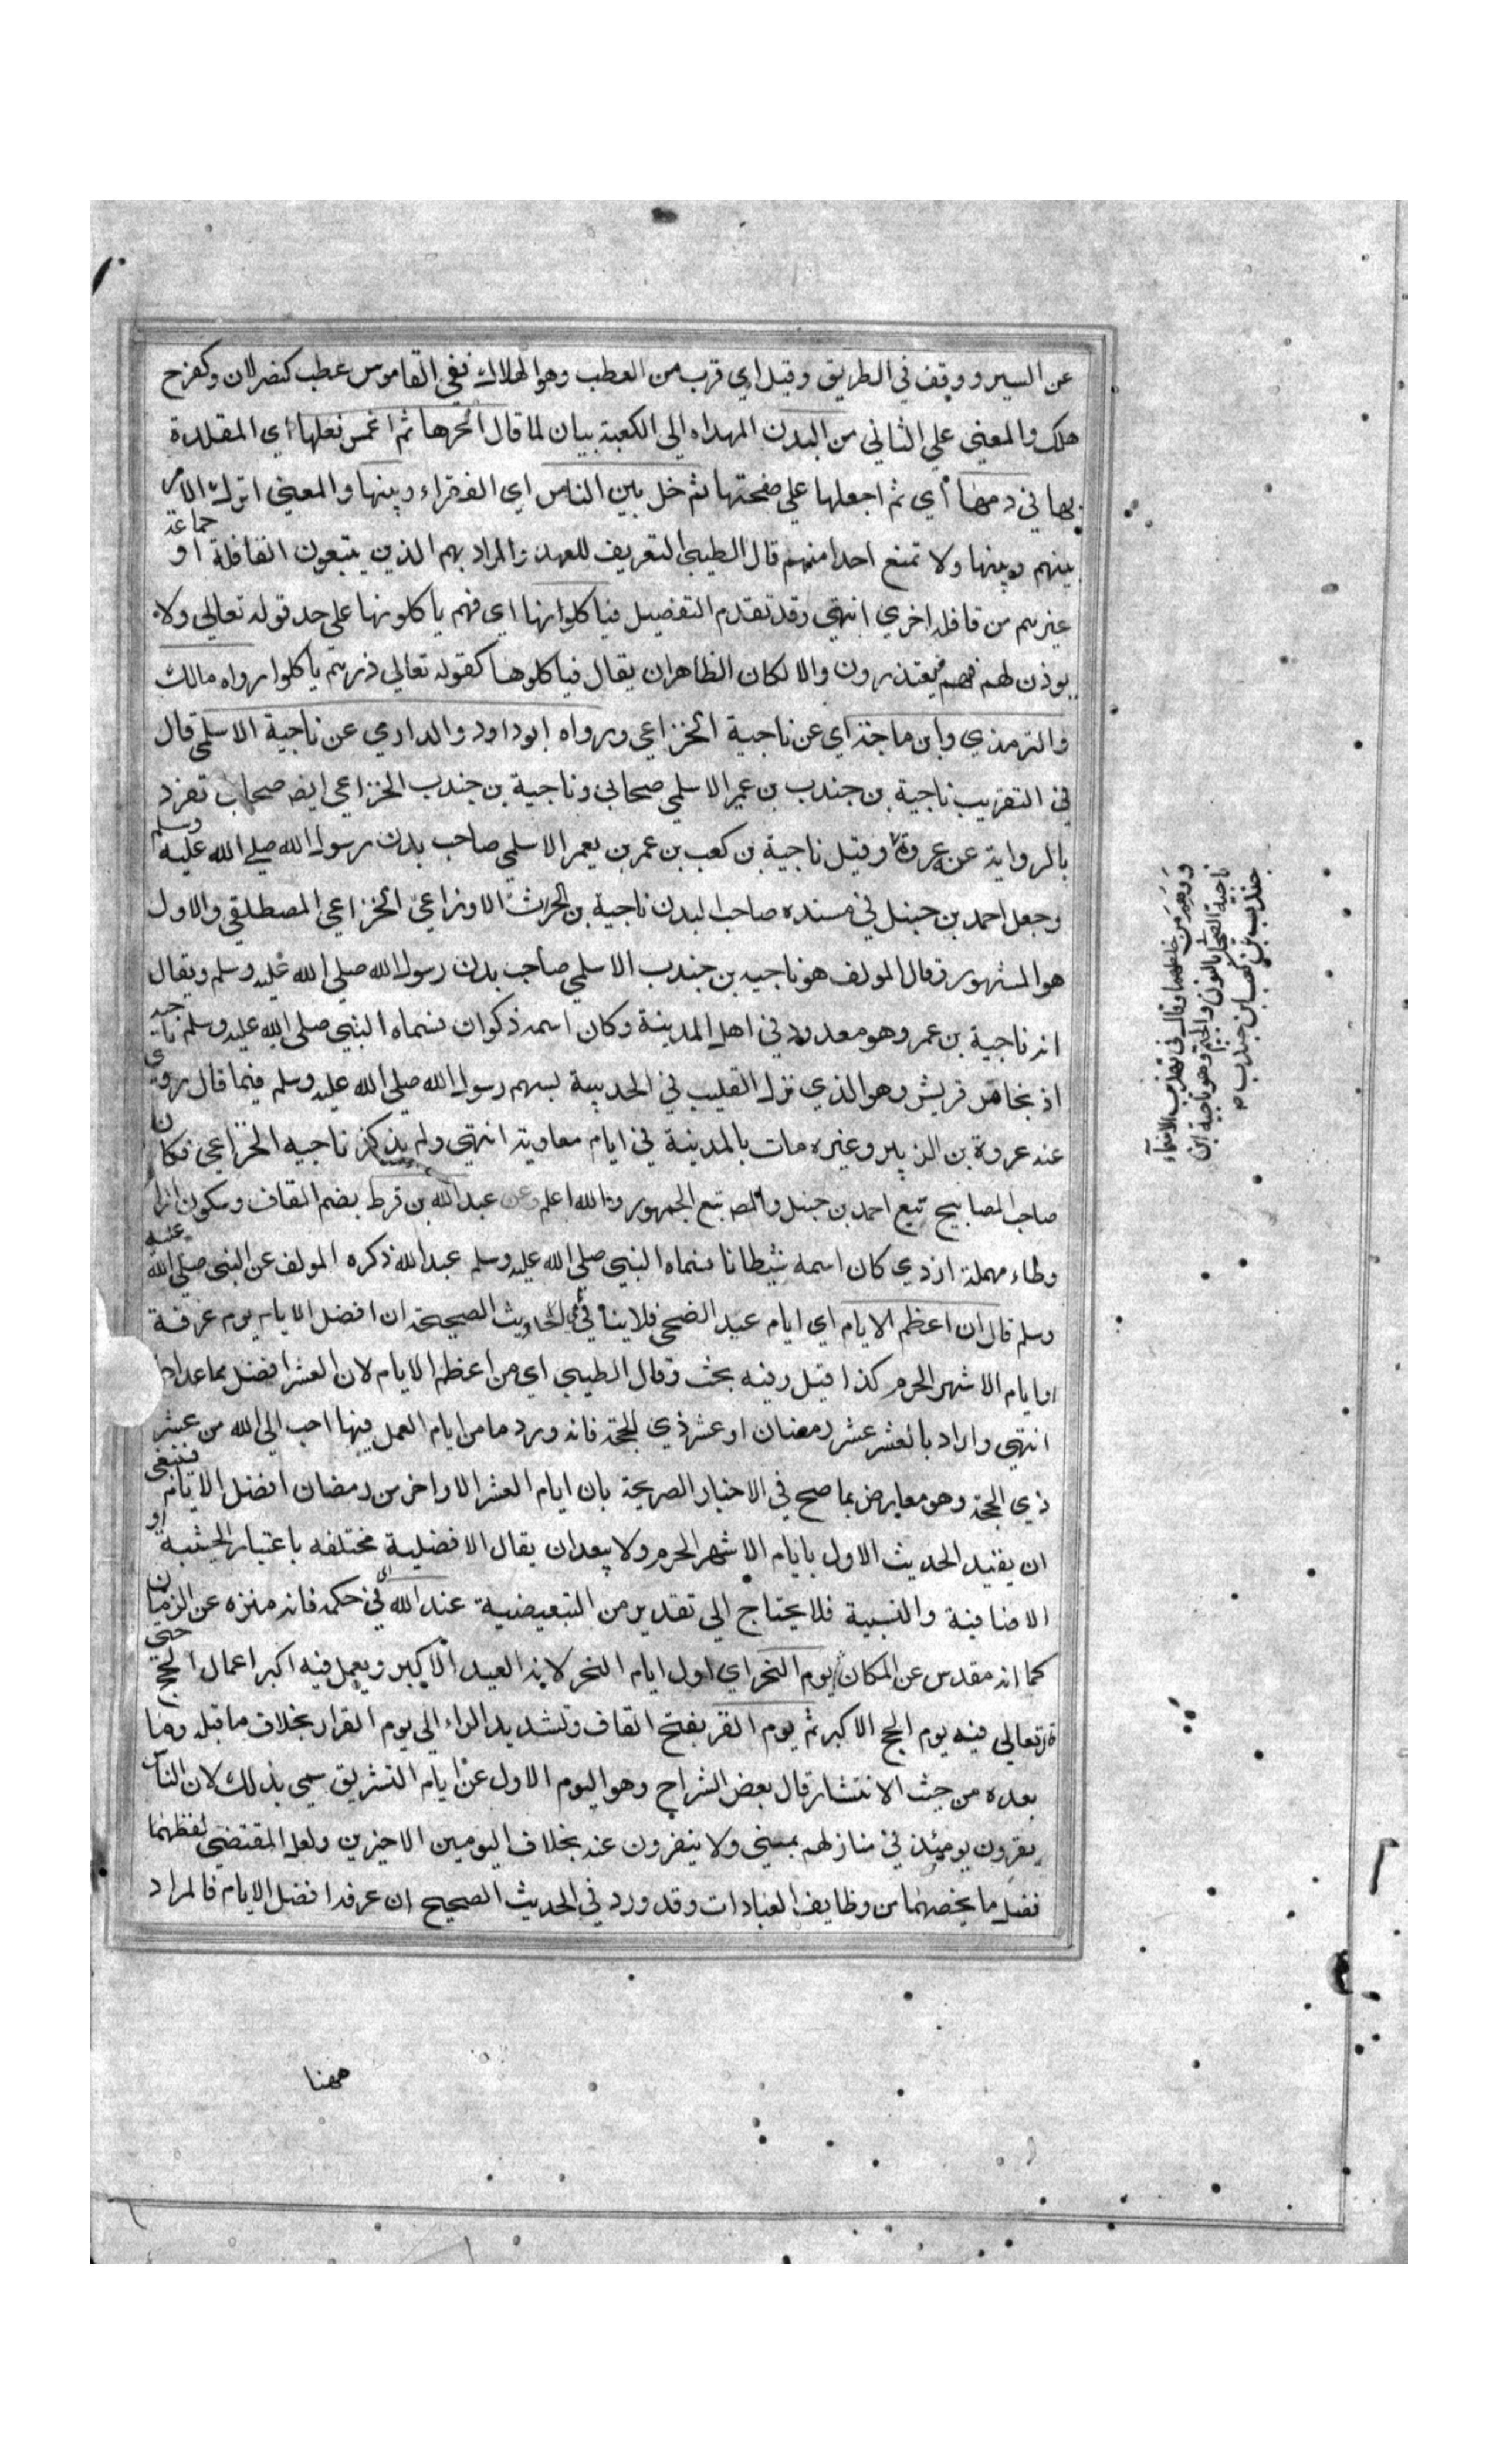 عن السير ووقف في الطريق وقيل اي قرب من العطب وهو الهلاك ففي القاموس عطب كنصر لان وكفرح
هلك والمعني علي الثاني من البدن المهداه الي الكعبة بيان لما قال انحرها ثم اغمس نعلها اي المقلدة
بها في دمها أي ثم اجعلها علي صفحتها ثم خل بين الناس اي الفقراء وبينها والمعني اترك الامر
بينهم وبينها ولا تمنع احدا منهم قال الطيبي التعريف للعهد والمراد بهم الذين يتبعون القافلة او جماعة
غيرهم من قافله اخري انتهي وقد تقدم التفصيل فياكلوانها اي فهم ياكلونها علي حد قوله تعالي ولا
يوذن لهم فهم فيعتذرون والا لكان الظاهر ان يقال فياكلوها كقوله تعالي ذرهم ياكلوا رواه مالك
والترمذي وابن ماجة اي عن ناجية الخزاعي ورواه ابوداود والدارمي عن ناجية الاسلمي قال
في التقريب ناجية بن جندب بن عمير الاسلمي صحابي وناجية بن جندب الخزاعي ايضا صحابي تفرد
بالرواية عن عروة وقيل ناجية بن كعب بن عمر بن يعمر الاسلمي صاحب بدن رسول الله صلي الله عليه وسلم
وجعل احمد بن حنبل في مسنده صاحب البدن ناجية بن الحرث الاوزاعي الخزاعي المصطلقي والاول
هو المشهور وقال المولف هو ناجيه بن جندب الاسلمي صاحب بدن رسول الله صلي الله عليه وسلم ويقال
انه ناجية بن عمر وهو معدود في اهل المدينة وكان اسمه ذكوان فسماه النبي صلي الله عليه وسلم ناجيه
اذ نجا من قريش وهو الذي نزل القليب في الحديبية بسهم رسول الله صلي الله عليه وسلم فيما قال روي
عنه عروة بن الزبير وغيره مات بالمدينة في ايام معاوية انتهي ولم يذكر ناجيه الخزاعي فكان
صاحب المصابيح تبع احمد بن حنبل والمص تبع الجمهور والله اعلم وعن عبدالله بن قرط بضم القاف وسكون الرا
وطاء مهملة ازدي كان اسمه شيطانا فسماه النبي صلي الله عليه وسلم عبدالله ذكره المولف عن النبي صلي الله عليه
وسلم قال ان اعظم الايام اي ايام عيد الضحي فلا ينافي الاحاديث الصحيحة ان افضل الايام يوم عرفة
او ايام الاشهر الحرم كذا قيل وفيه بحث وقال الطيبي اي من اعظم الايام لان العشر افضل مما عداه
انتهي واراد بالعشر عشر رمضان او عشر ذي الحجة فانه ورد ما من ايام العمل فيها احب الي الله من عشر
ذي الحجة وهو معارض بما صح في الاخبار الصريحة بان ايام العشر الاواخر من رمضان افضل الايام فينبغي
ان يقيد الحديث الاول بايام الاشهر الحرم ولا يبعد ان يقال الافضلية مختلفه باعتبار الحيثية او
الاضافية والنسبية فلا يحتاج الي تقدير من التبعيضية عند الله اي في حكمه فانه منزه عن الزمان
كما انه مقدس عن المكان يوم النحر اي اول ايام النحر لانه العيد الاكبر ويعمل فيه اكبر اعمال الحج حتي
قال تعالي فيه يوم الحج الاكبر ثم يوم القر بفتح القاف وتشديد الراء الي يوم القرار بخلاف ما قبله وما
بعده من حيث الانتشار قال بعض الشراح وهو اليوم الاول من ايام التشريق سمي بذلك لان الناس
يقرون يومئذ في منازلهم بمني ولا ينفرون عنه بخلاف اليومين الاخيرين ولعل المقتضي لفظهما
فضل ما يخصهما من وظايف العبادات وقد ورد في الحديث الصحيح ان عرفه افضل الايام فالمراد
ههنا
ووهم من خلطهما وقال في تهذيب الاسماء
ناجية الصحابي بالنون والجيم وهو ناجية ابن
جندب بن كعب ابن جندب